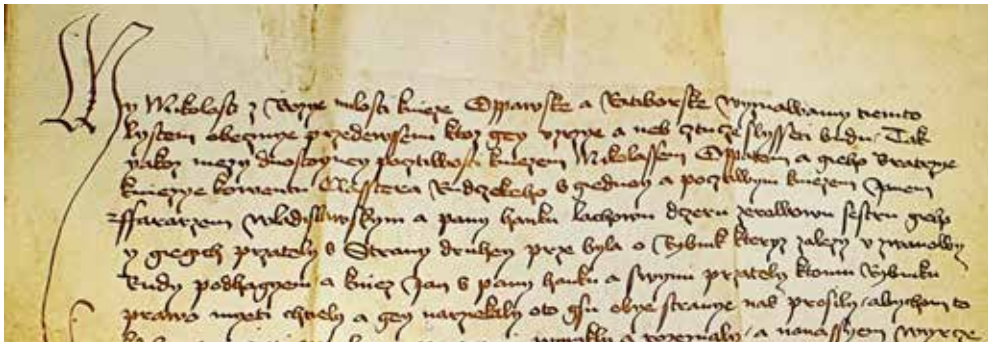 My Mikolass z Bozye milosti knieze Oppawske a Ratiborske wyznawamy tiemto
lystem obecznye przedewssemi ktoz gey vzrzye a neb cztucze slysseti budu Tak
yakoz mezy duostoynym pocztiwosti kniezem Mikolassem Oppatem a gieho bratrzye
kniezye konwentu Classtera Rudzskeho s gedney a pocztiwym kniezem Janem
ffararzem Wladislawskym a pany hanku lachowu dczeru zeralkowu sestru gieho
y giegich przately s Strany druhey prze byla o Rybnik kteryz zalezy v
Rudy podhagyem a kniez Jan s pany hanku a swymi przately ktomu Rybniku
prawo myeti chtiely a gey narziekaly oto gsu obye stranye nas prosily abychom to
a rozeznaly a nanassyem wyrcze